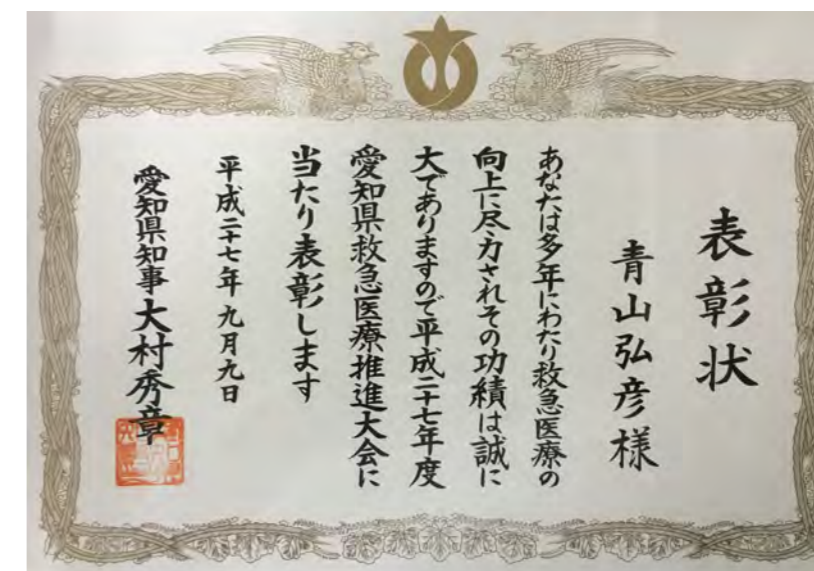 表彰状
青山弘彦様
あなたは多年にわたり救急医療の
向上に尽力されその功績は誠に
大でありますので平成二十七年度
愛知県救急医療推進大会に
当たり表彰します
平成二十七年九月九日
愛知県知事大村秀章